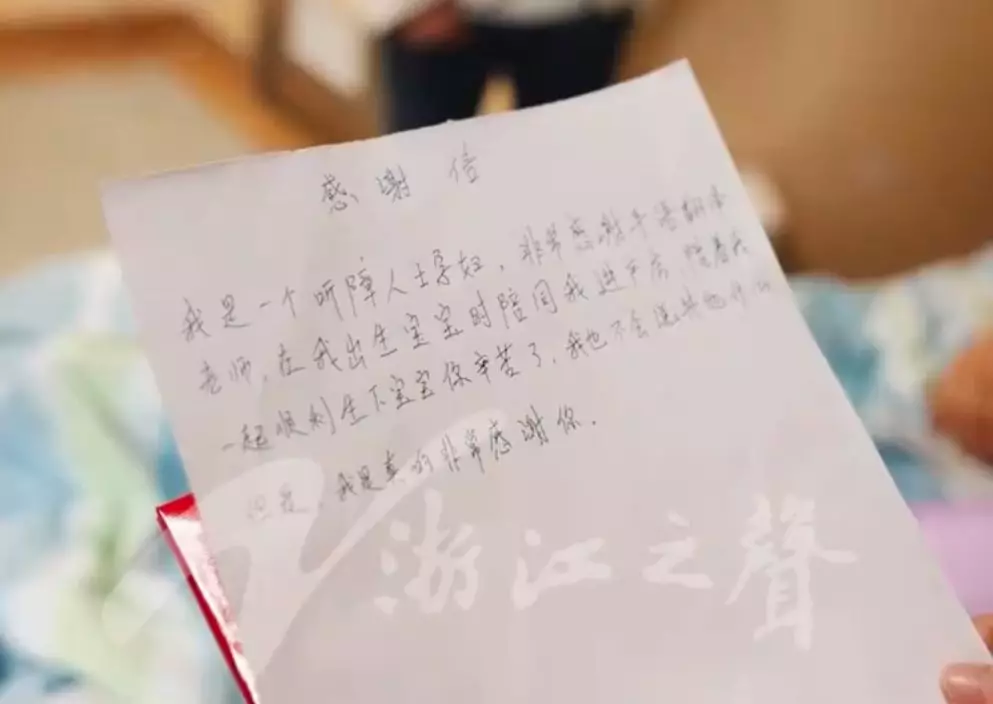 感谢信
我是一个听障人士孕妇，非常感谢手语翻译
老师，在我出生宝宝时陪同我进产房，陪着我
一起顺利生下宝宝你辛苦了，我也不会说其他
但是，我是真的非常感谢你.
浙江之聲